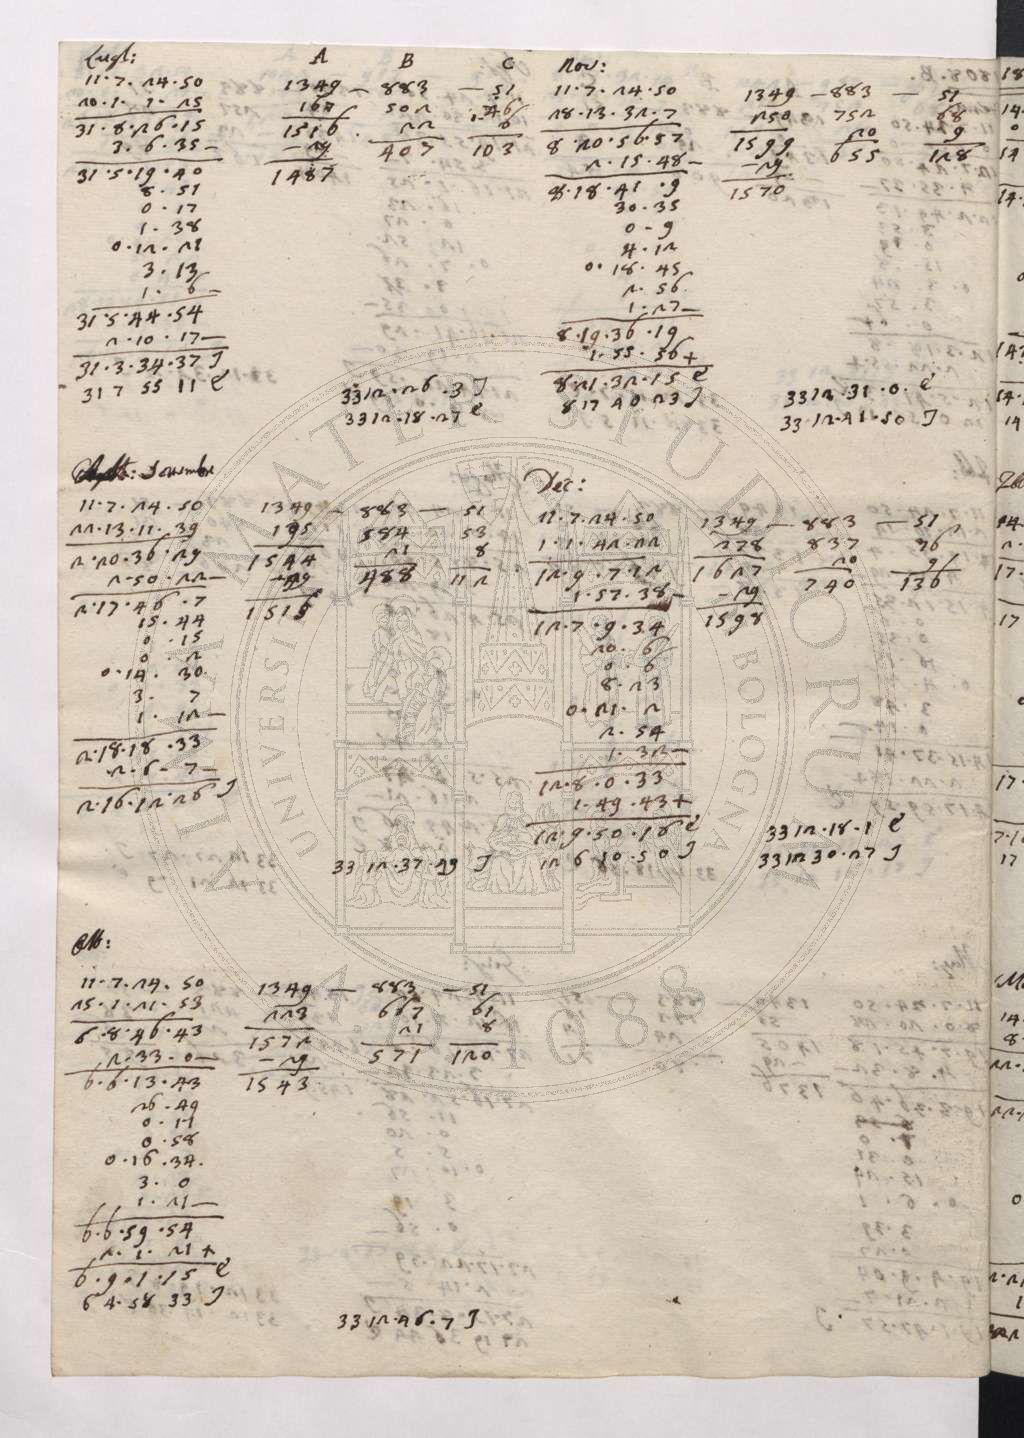 Lugl:
A B C
11.7.24.50 1349 — 883 — 51
20.1.1.25 167 502 46
31.8.26.15 1516 22 6
3.6.35 — — 29 407 103
31.5.19.40 1487
8.51
0.17
1.38
0.12.21
3.13
1.6 —
31.5.44.54
2.10.17 —
31.3.34.37 J
31 7 55 11 C
3312.26.3 J
3312.18.27 C
Nov:
11.7.24.50 1349 — 883 — 51
18.13.32.7 250 752 68
8.20.56.57 1599 20 9
2.15.48 — — 29 655 128
8.18.41.9 1570
30.35
0.9
4.12
0.18.45
2.56
1.27 —
8.19.36.19
1.55.56 +
8.21.32.15 C
8 17 40 23 J
3312.31.0. C
3312.41.50 J
Settembre
11.7.24.50 1349 — 883 — 51
22.13.11.39 195 584 53
2.20.36.29 1544 21 8
2.50.22 — 29 488 112
2.17.46.7 1515
15.44
0.15
0.2
0.14.30
3.7
1.12 —
2.18.18.33
2.6.7 —
2.16.12.26 J
3312.37.23 J
Dec:
11.7.24.50 1349 — 883 — 51
1.1.42.22 278 837 76
12.9.7.12 1627 20 9
1.57.38 — — 29 740 136
12.7.9.34 1598
20.6
0.6
8.23
0.21.2
2.54
1.32 —
12.8.0.33
1.49.43 +
12.9.50.16 C
12 6 10.50 J
3312.18.1 C
3312 30.27 J
Ott:
11.7.24.50 1349 — 883 — 51
25.1.21.53 223 667 61
6.8.46.43 1572 21 8
2.33.0 — — 29 571 120
6.6.13.43 1543
26.49
0.11
0.58
0.16.34.
3.0
1.21 —
6.6.59.54
2.1.21 +
6.9.1.15 C
6 4.58 33 J
3312.46.7 J
ALMA MATER STUDIORUM
UNIVERSITÀ DI BOLOGNA
A.D. 1088